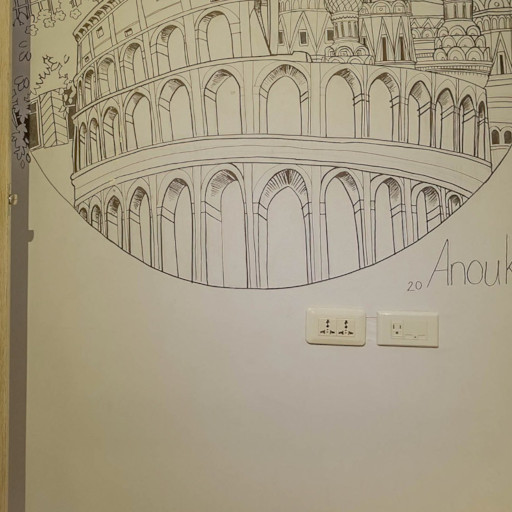 20 Anouk